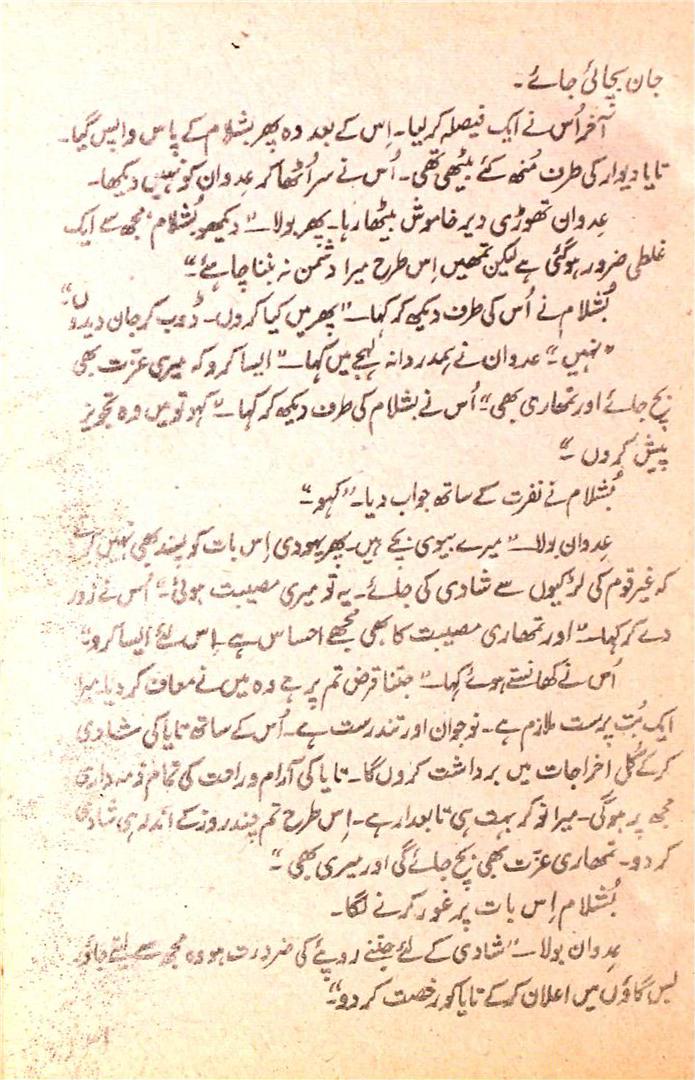 جان بچائی جائے۔
آخر اُس نے ایک فیصلہ کر لیا۔ اِس کے بعد وہ پھر بشلام کے پاس واپس گیا۔
تایا دیوار کی طرف مُنھ کئے بیٹھی تھی۔ اُس نے سر اُٹھا کر عِدوان کو نہیں دیکھا۔
عِدوان تھوڑی دیر خاموش بیٹھا رہا۔ پھر بولا۔ "دیکھو بُشلام، مجھ سے ایک
غلطی ضرور ہو گئی ہے لیکن تمھیں اِس طرح میرا دشمن نہ بننا چاہئے۔"
بُشلام نے اُس کی طرف دیکھ کر کہا۔ "پھر میں کیا کروں۔ ڈوب کر جان دیدوں"
"نہیں۔" عدوان نے ہمدردانہ لہجے میں کہا۔ "ایسا کرو کہ میری عزّت بھی
بچ جائے اور تمھاری بھی۔" اُس نے بشلام کی طرف دیکھ کر کہا۔ "کہو تو میں وہ تجویز
پیش کروں۔"
بُشلام نے نفرت کے ساتھ جواب دیا۔ "کہو۔"
عِدوان بولا۔ "میرے بیوی بچے ہیں۔ پھر یہودی اِس بات کو پسند بھی نہیں کرتے
کہ غیر قوم کی لڑکیوں سے شادی کی جائے۔ یہ تو میری مصیبت ہوئی۔" اُس نے زور
دے کر کہا۔ "اور تمھاری مصیبت کا بھی مجھے احساس ہے۔ اِس لئے ایسا کرو۔"
اُس نے کھانستے ہوئے کہا۔ "جتنا قرض تم پر ہے وہ میں نے معاف کر دیا۔ میرا
ایک بُت پرست ملازم ہے۔ نوجوان اور تندرست ہے۔ اُس کے ساتھ تایا کی شادی
کر کے کُل اخراجات میں برداشت کروں گا۔ تایا کی آرام و راحت کی تمام ذمہ داری
مجھ پر ہوگی۔ میرا نوکر بہت ہی تابعدار ہے۔ اِس طرح تم چند روز کے اندر ہی شادی
کر دو۔ تمھاری عزّت بھی بچ جائے گی اور میری بھی۔"
بُشلام اِس بات پر غور کرنے لگا۔
عِدوان بولا۔ "شادی کے لئے جتنے روپئے کی ضرورت ہو وہ مجھ سے لیتے جاؤ۔
بس گاؤں میں اعلان کر کے تایا کو رخصت کر دو۔"